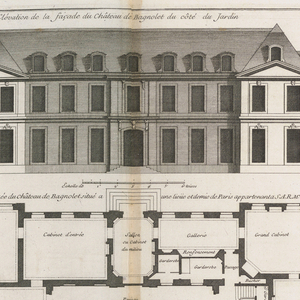 Elévation de la façade du Château de Bagnolet du côté du Jardin
Echelle de
5 toises
du Château de Bagnolet, situé à une lieüe et demie de Paris appartenant a S.A.R.M.
Cabinet d'entrée
Sallon
ou Cabinet
du milieu
Gallerie
Grand Cabinet
Renfoncement
Garderobe
Garderobe
Passage
Buffet